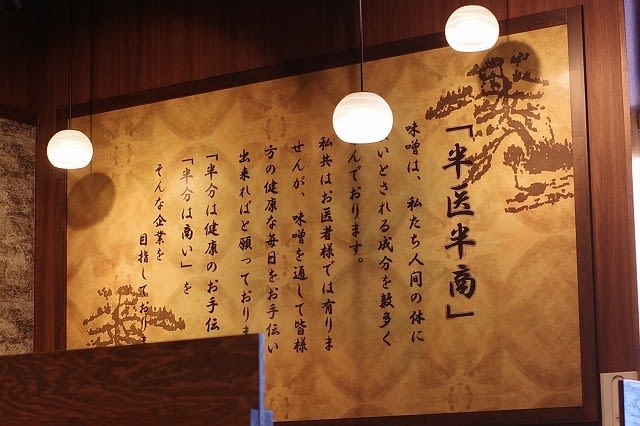 「半医半商」
味噌は、私たち人間の体に
いとされる成分を数多く
んでおります。
私共はお医者様では有りま
せんが、味噌を通して皆様
方の健康な毎日をお手伝い
出来ればと願っておりま
「半分は健康のお手伝
「半分は商い」を
そんな企業を
目指しておりま